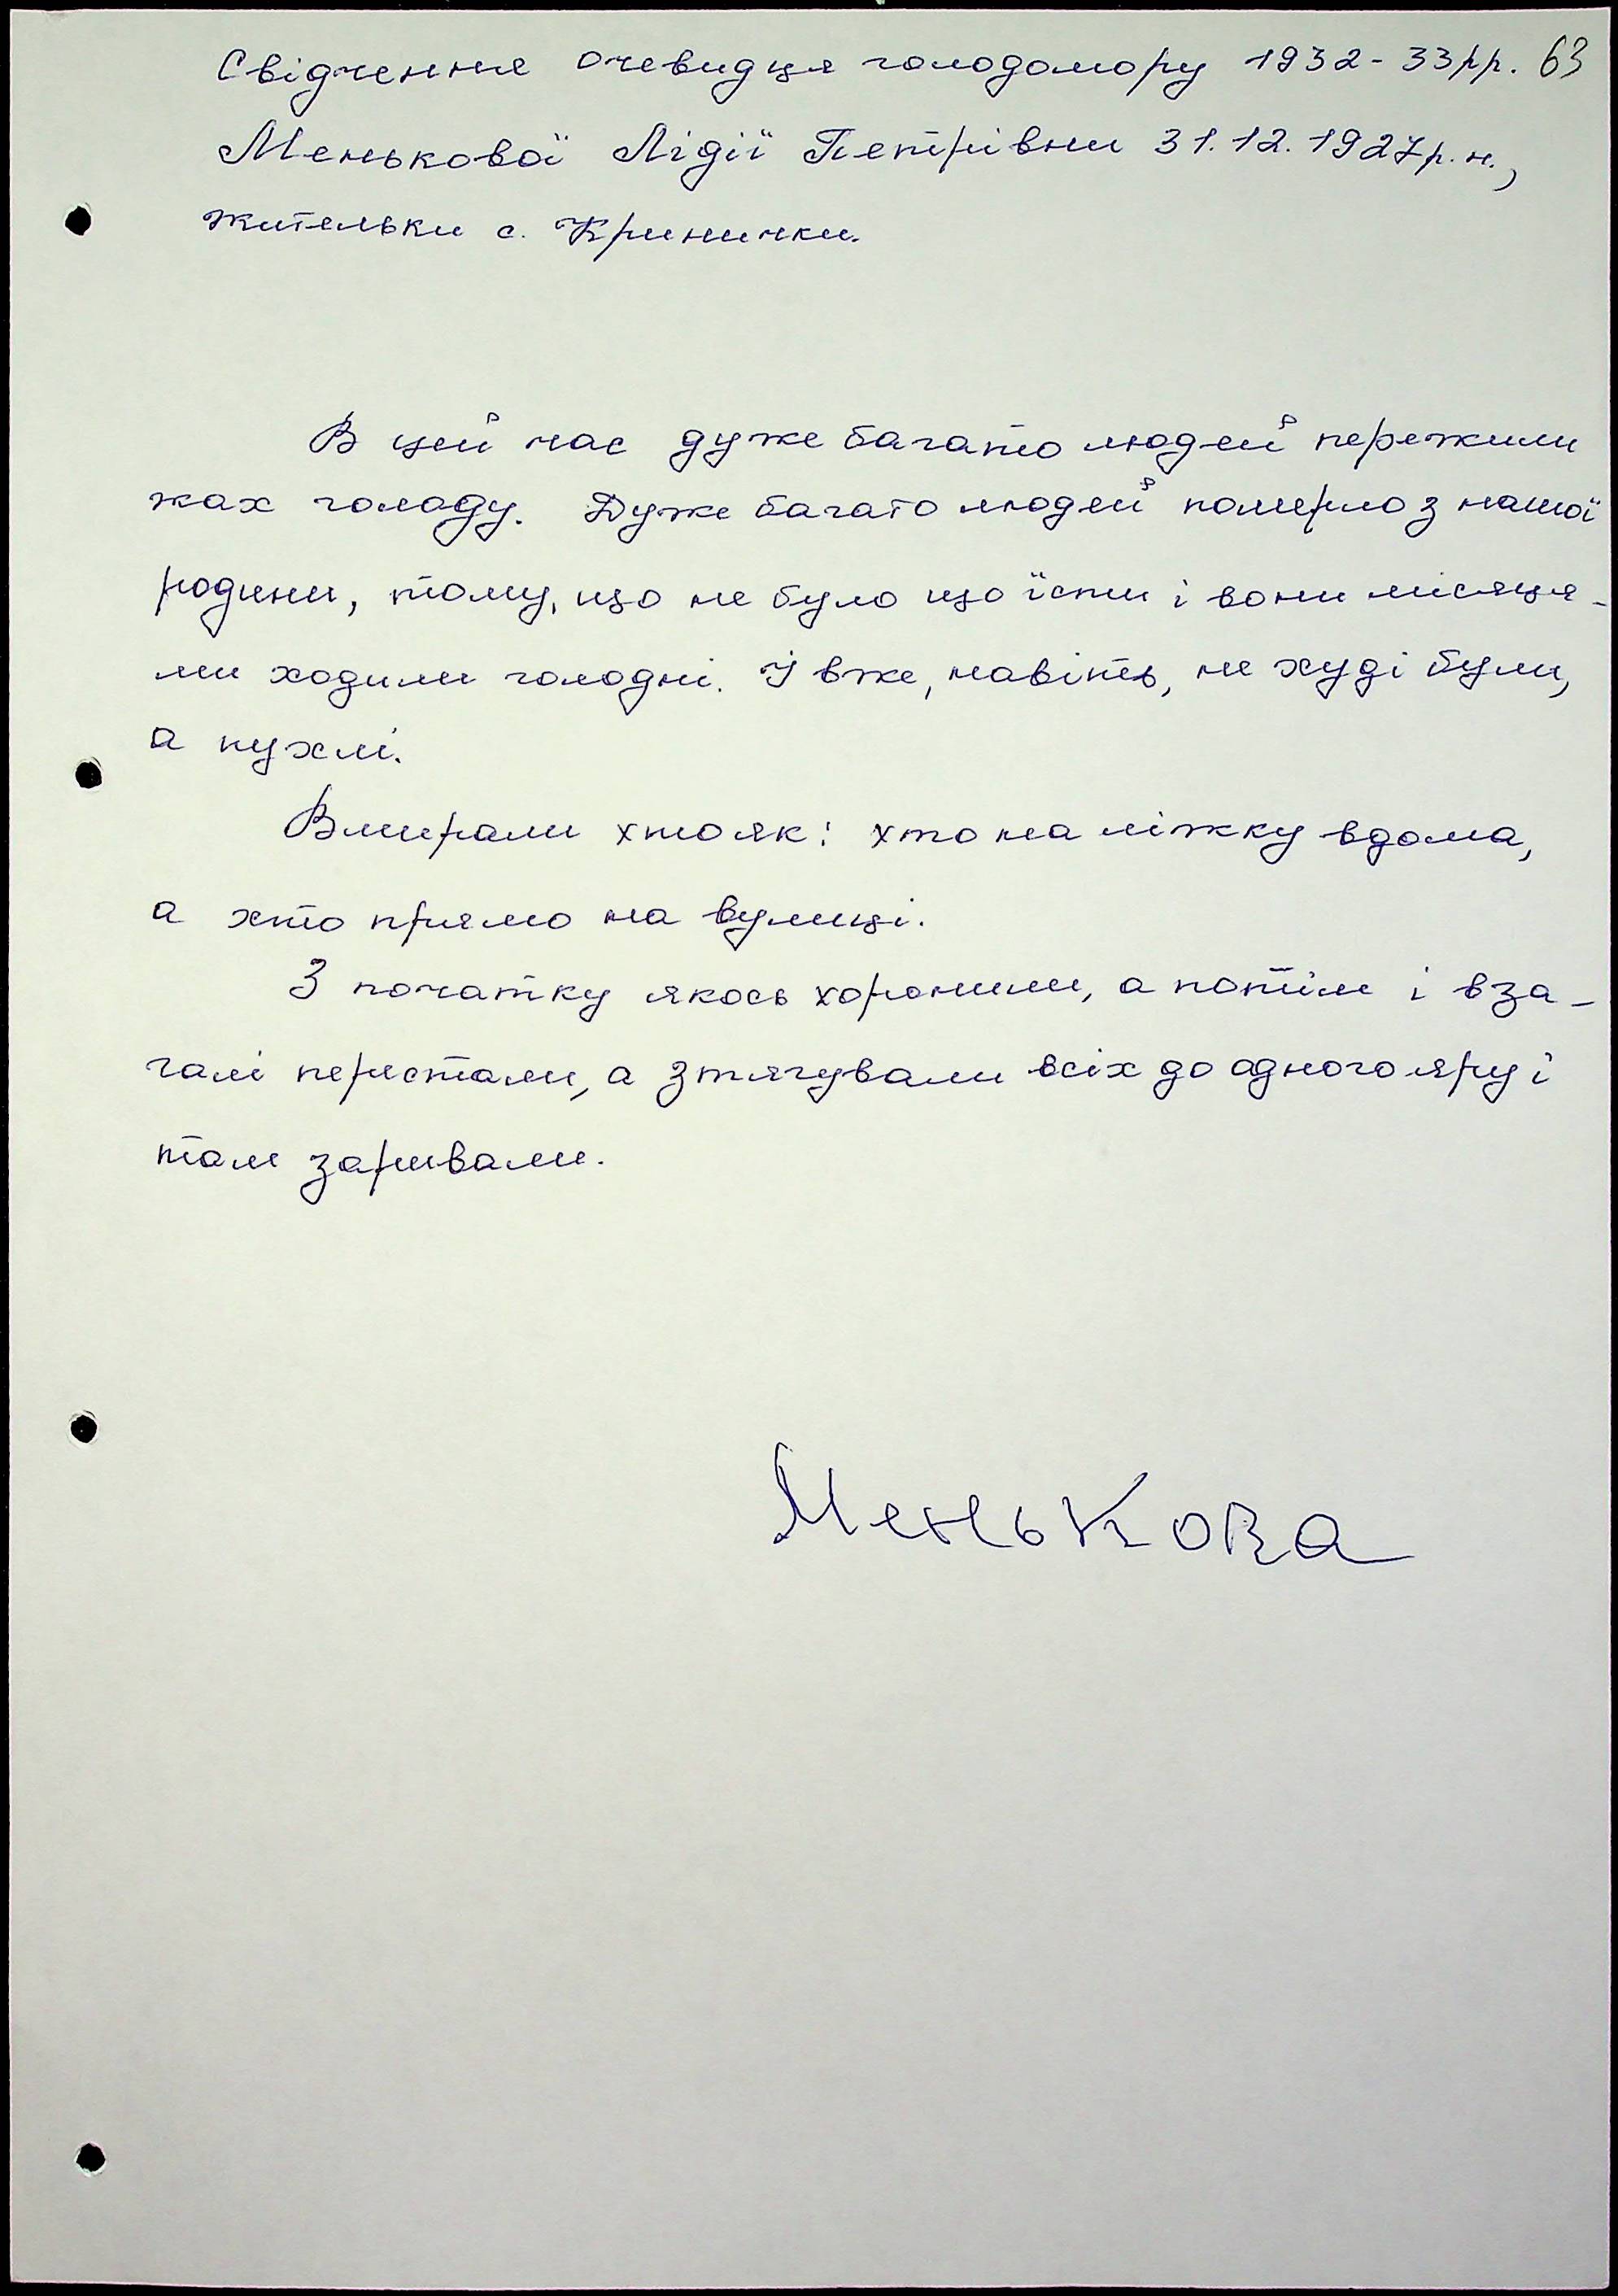 Свідчення очевидця голодомору 1932-33рр. 63
Менькової Лідії Петрівни 31.12.1927р.н.,
жительки с. Кринички.
В цей час дуже багато людей пережили
жах голоду. Дуже багато людей померло з нашої
родини, тому, що не було що їсти і вони місяця-
ми ходили голодні. І вже, навіть, не худі були,
а пухлі.
Вмирали хто як: хто на ліжку вдома,
а хто прямо на вулиці.
З початку якось хоронили, а потім і вза-
галі перестали, а зтягували всіх до одного яру і
там заривали.
Менькова